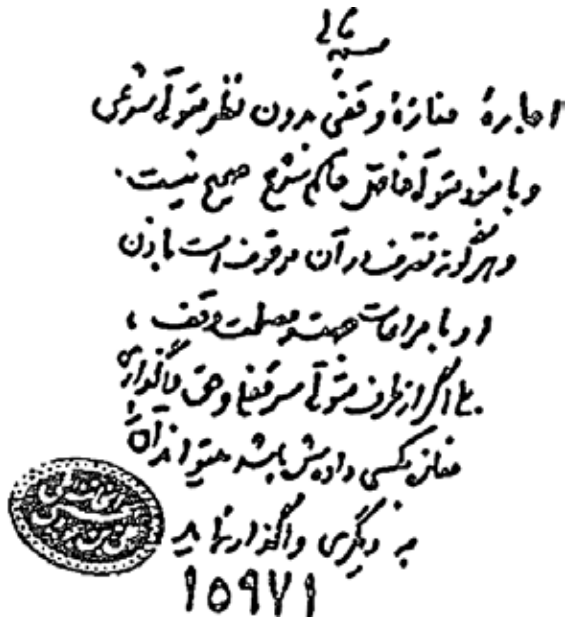 بسمه تعالی
اجارهٔ مغازهٔ وقفی بدون نظر متولی شرعی
و با نبود متولی خاص حاکم شرع صحیح نیست.
و هرگونه تصرف در آن موقوف است باذن
او با مراعات جهت و مصلحت وقف ،
بلی اگر از طرف متولی سرقفلی و حق واگذاری
مغازه بکسی داده شده باشد میتواند آن را
به دیگری واگذار نماید
۱۵۹۷۱